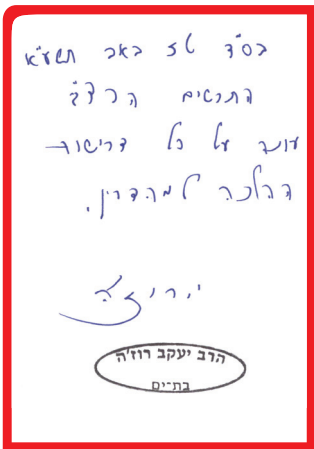 בס"ד טז באב תשע"א
התרשים הרצ"ב
עונה על כל דרישות
ההלכה למהדרין.
הרב יעקב רוז'ה
בת־ים